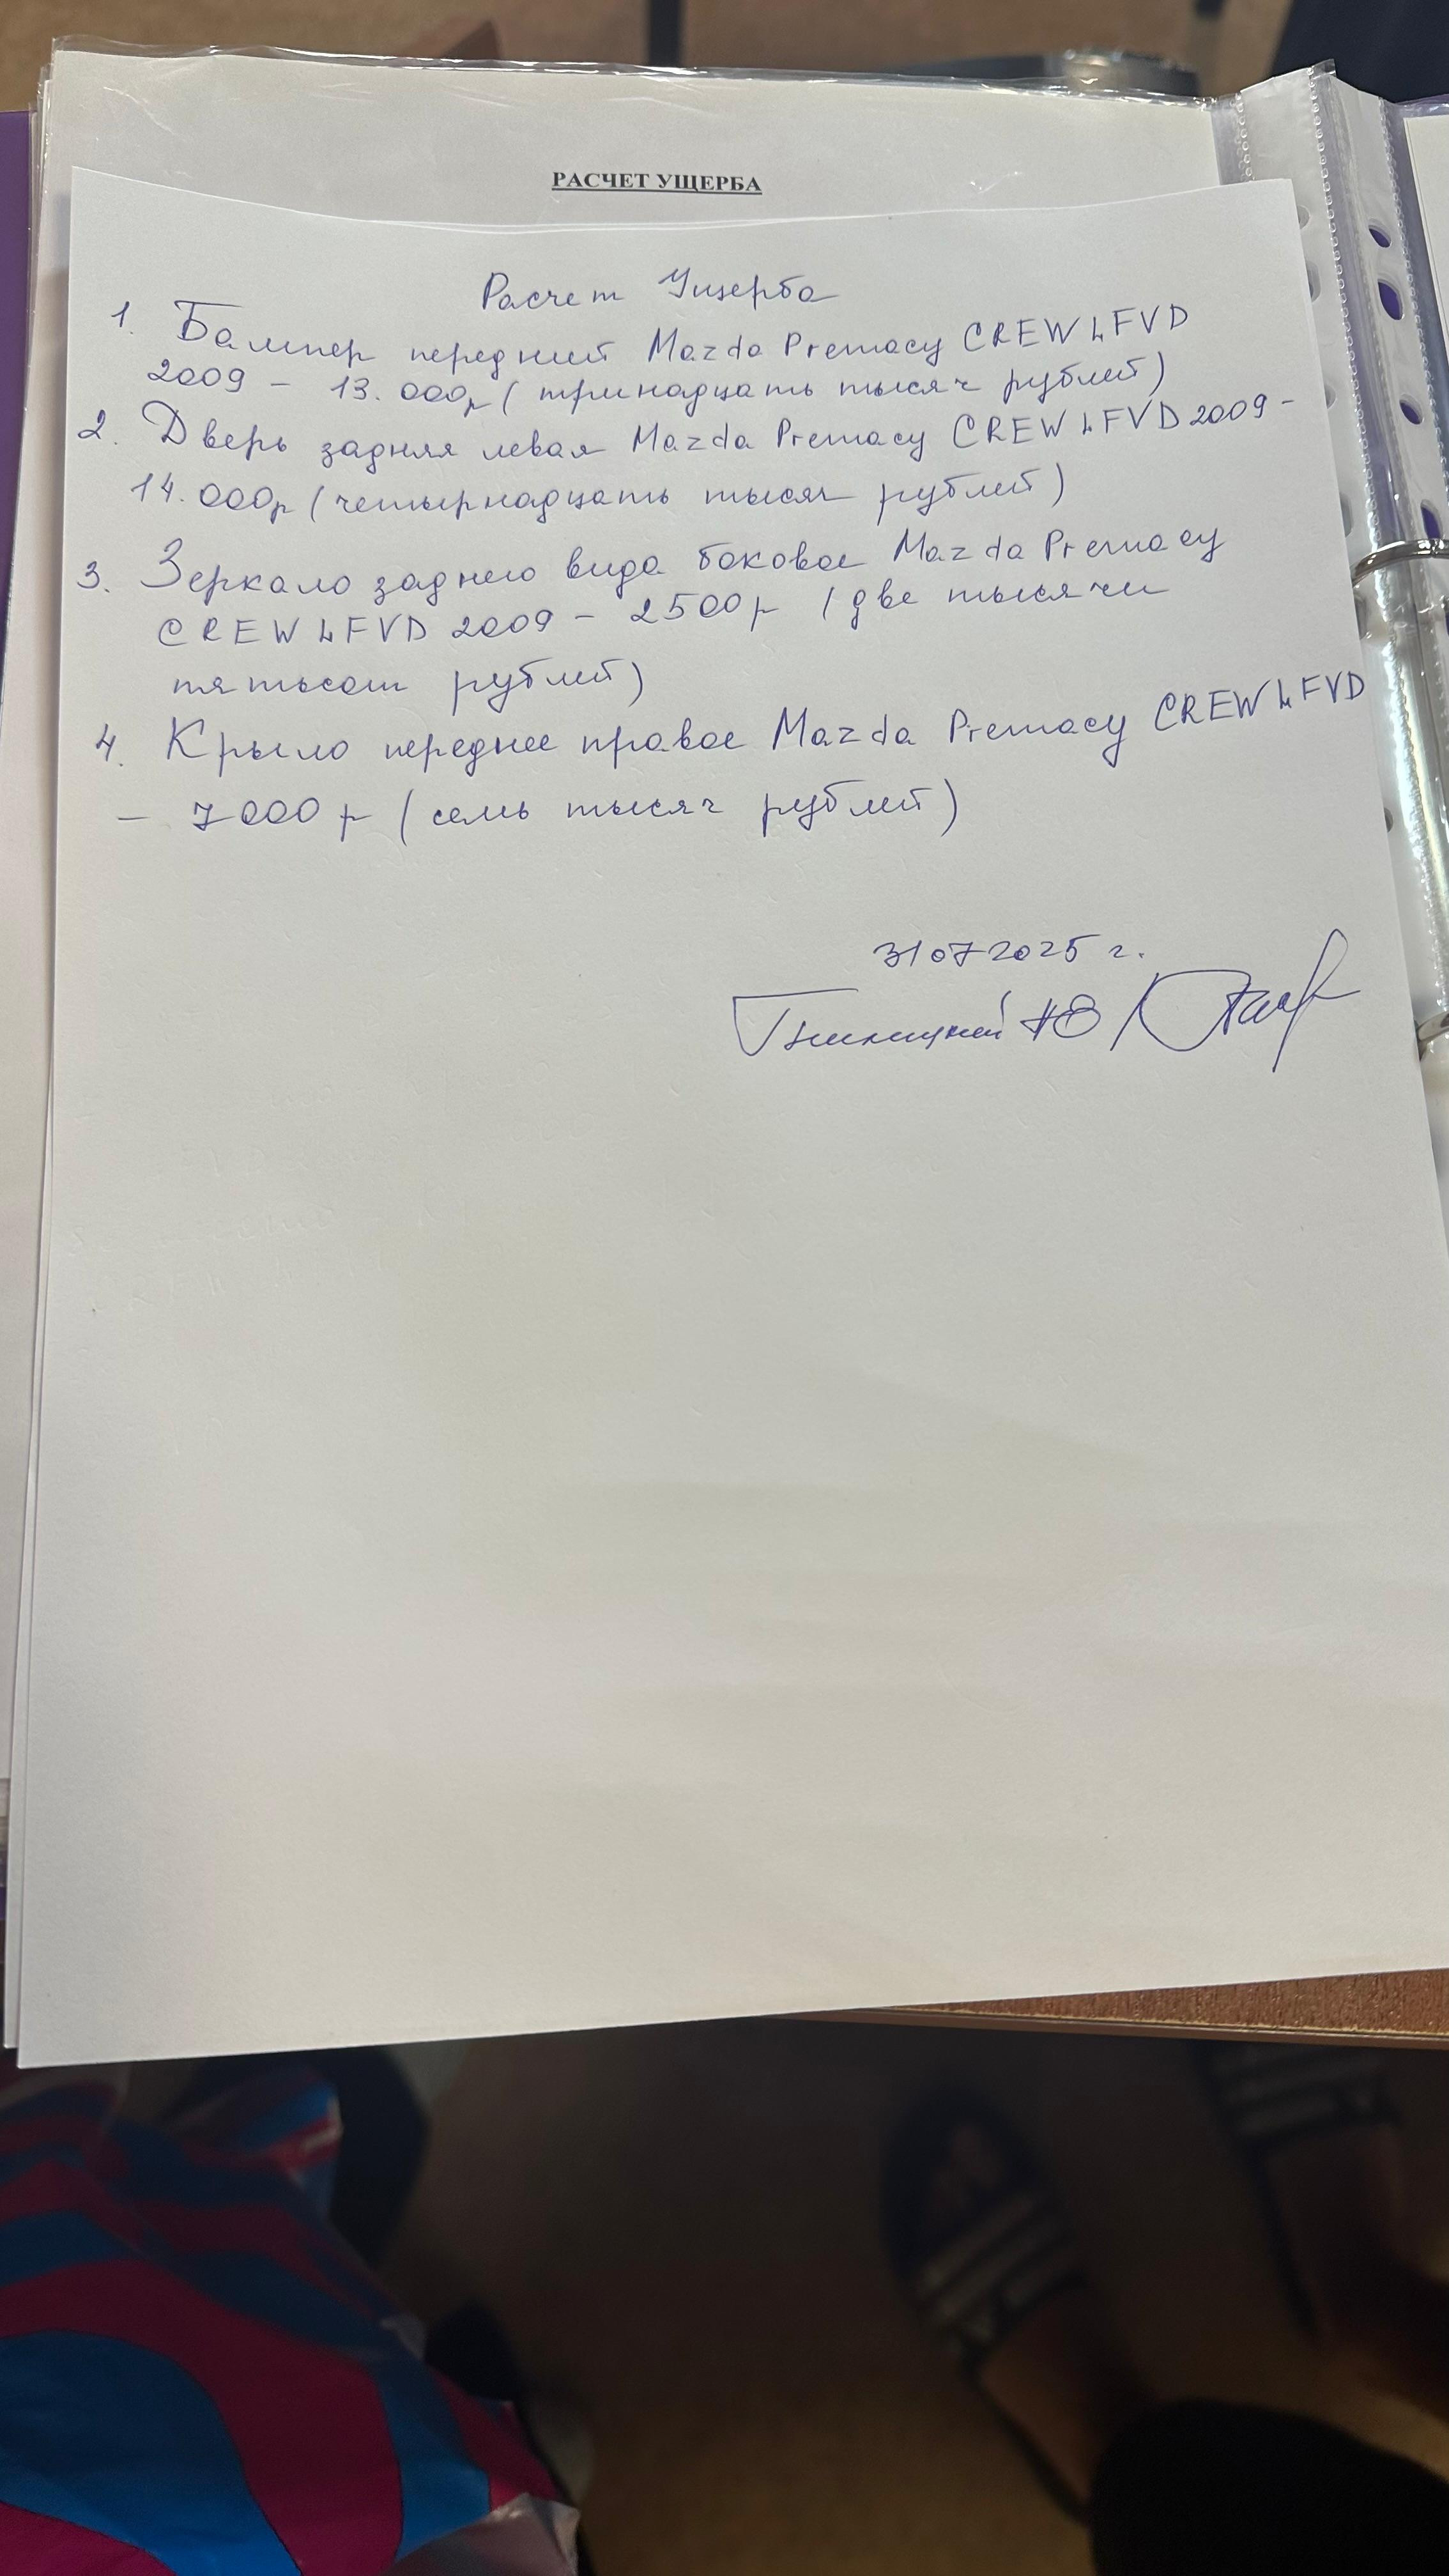 РАСЧЕТ УЩЕРБА
Расчет Ущерба
1. Бампер передний Mazda Premacy CREW LFVD
2009 – 13.000р (тринадцать тысяч рублей)
2. Дверь задняя левая Mazda Premacy CREW LFVD 2009 –
14.000р (четырнадцать тысяч рублей)
3. Зеркало заднего вида боковое Mazda Premacy
CREW LFVD 2009 – 2500р (две тысячи
пятьсот рублей)
4. Крыло переднее правое Mazda Premacy CREW LFVD
– 7000р (семь тысяч рублей)
31072025 г.